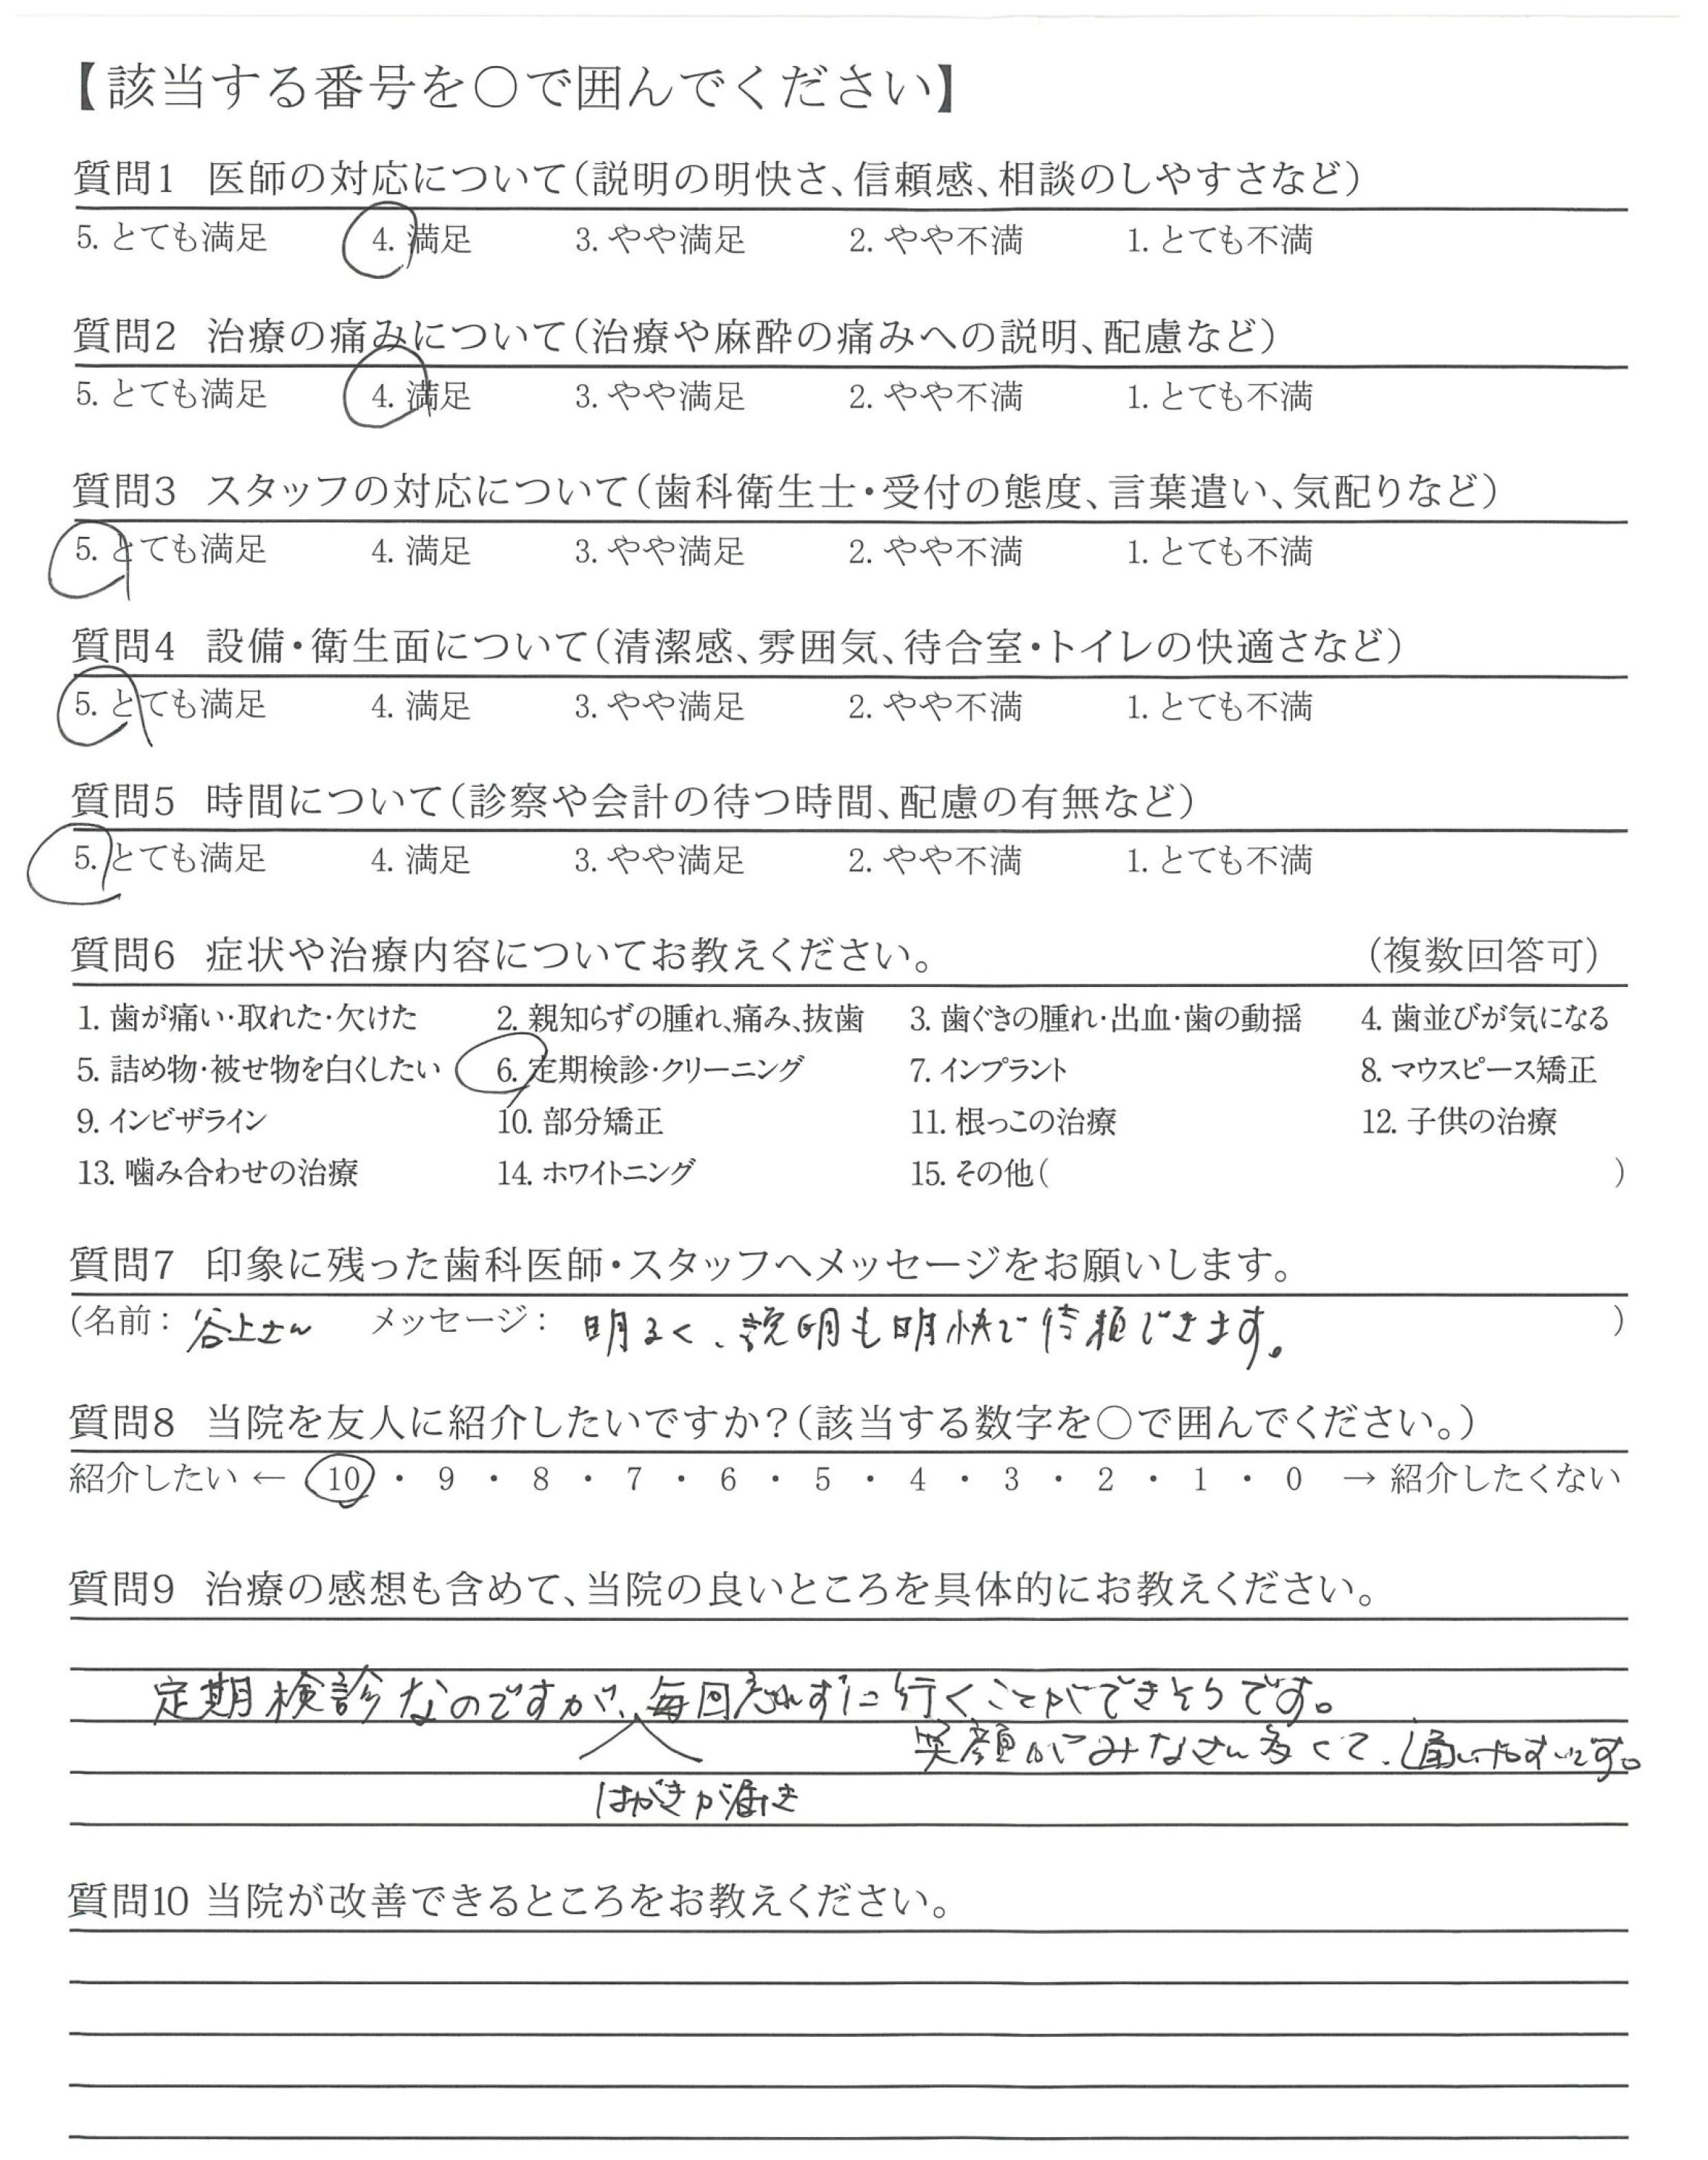 【該当する番号を○で囲んでください】
質問1 医師の対応について(説明の明快さ、信頼感、相談のしやすさなど)
5. とても満足 4. 満足 3. やや満足 2. やや不満 1. とても不満
質問2 治療の痛みについて(治療や麻酔の痛みへの説明、配慮など)
5. とても満足 4. 満足 3. やや満足 2. やや不満 1. とても不満
質問3 スタッフの対応について(歯科衛生士・受付の態度、言葉遣い、気配りなど)
5. とても満足 4. 満足 3. やや満足 2. やや不満 1. とても不満
質問4 設備・衛生面について(清潔感、雰囲気、待合室・トイレの快適さなど)
5. とても満足 4. 満足 3. やや満足 2. やや不満 1. とても不満
質問5 時間について(診察や会計の待つ時間、配慮の有無など)
5. とても満足 4. 満足 3. やや満足 2. やや不満 1. とても不満
質問6 症状や治療内容についてお教えください。 (複数回答可)
1. 歯が痛い・取れた・欠けた 2. 親知らずの腫れ、痛み、抜歯 3. 歯ぐきの腫れ・出血・歯の動揺 4. 歯並びが気になる
5. 詰め物・被せ物を白くしたい 6. 定期検診・クリーニング 7. インプラント 8. マウスピース矯正
9. インビザライン 10. 部分矯正 11. 根っこの治療 12. 子供の治療
13. 噛み合わせの治療 14. ホワイトニング 15. その他( )
質問7 印象に残った歯科医師・スタッフへメッセージをお願いします。
(名前: 谷上さん メッセージ: 明るく、説明も明快で信頼できます。 )
質問8 当院を友人に紹介したいですか?(該当する数字を○で囲んでください。)
紹介したい ← 10 ・ 9 ・ 8 ・ 7 ・ 6 ・ 5 ・ 4 ・ 3 ・ 2 ・ 1 ・ 0 → 紹介したくない
質問9 治療の感想も含めて、当院の良いところを具体的にお教えください。
定期検診なのですが、毎回忘れずに行くことができそうです。
笑顔がみなさん多くて、通いやすいです。
はがきが届き
質問10 当院が改善できるところをお教えください。